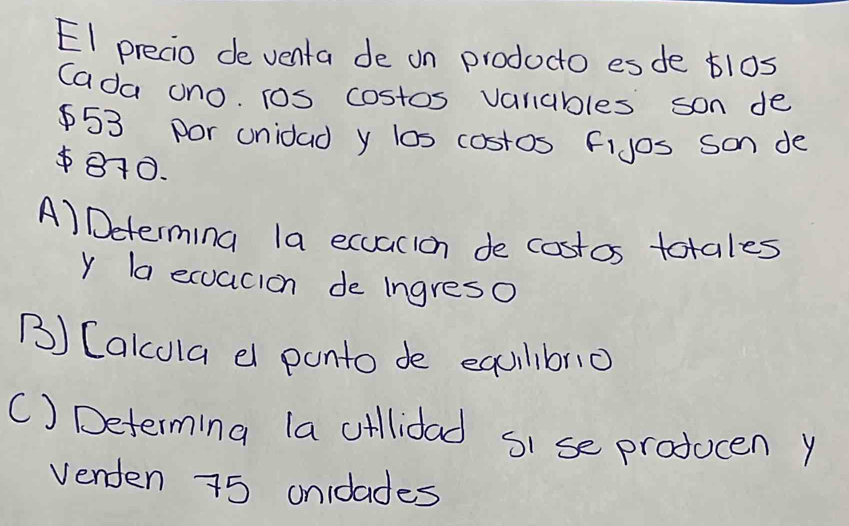 El precio de venta de un producto es de $105
Cada uno. los costos variables son de
$53 por unidad y los costos fijos son de
$870.
A) Determina la ecuacion de costos totales
y la ecuacion de ingreso
B) Calcula el punto de equilibrio
C) Determina la utilidad si se producen y
venden 75 unidades